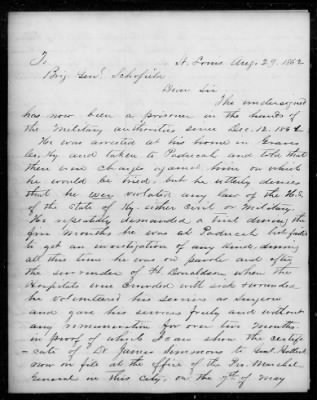 To St. Louis Aug. 29. 1862
Brig. Genl. Schofield
Dear Sir
The undersigned
has now been a prisoner in the hands of
the Military authorities since Dec. 12. 1861
He was arrested at his home in Graves
Co. Ky. and taken to Paducah and told that
there were charges against him on which
he would be tried. but he utterly denies
that he ever violated any law of the U.S.
of the State of Ky either Civil or Military.
He repeatedly demanded a trial during the
five months he was at Paducah but failed
to get an investigation of any kind. during
all this time he was on parole and after
the surrender of Ft Donaldson when the
Hospitals were crowded with sick & wounded
he volunteered his services as Surgeon
and gave his services freely and without
any remuneration for over two months
in proof of which I can show the certifi
-cate of Dr James Simmons to Genl Halleck
now on file at the office of the Pro. Marshal
General in this city. on the 7th of May